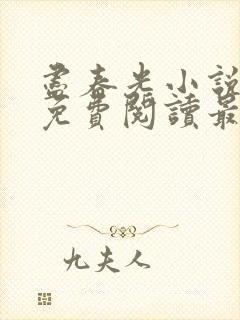 盡春光小說
免費閱讀最
九夫人